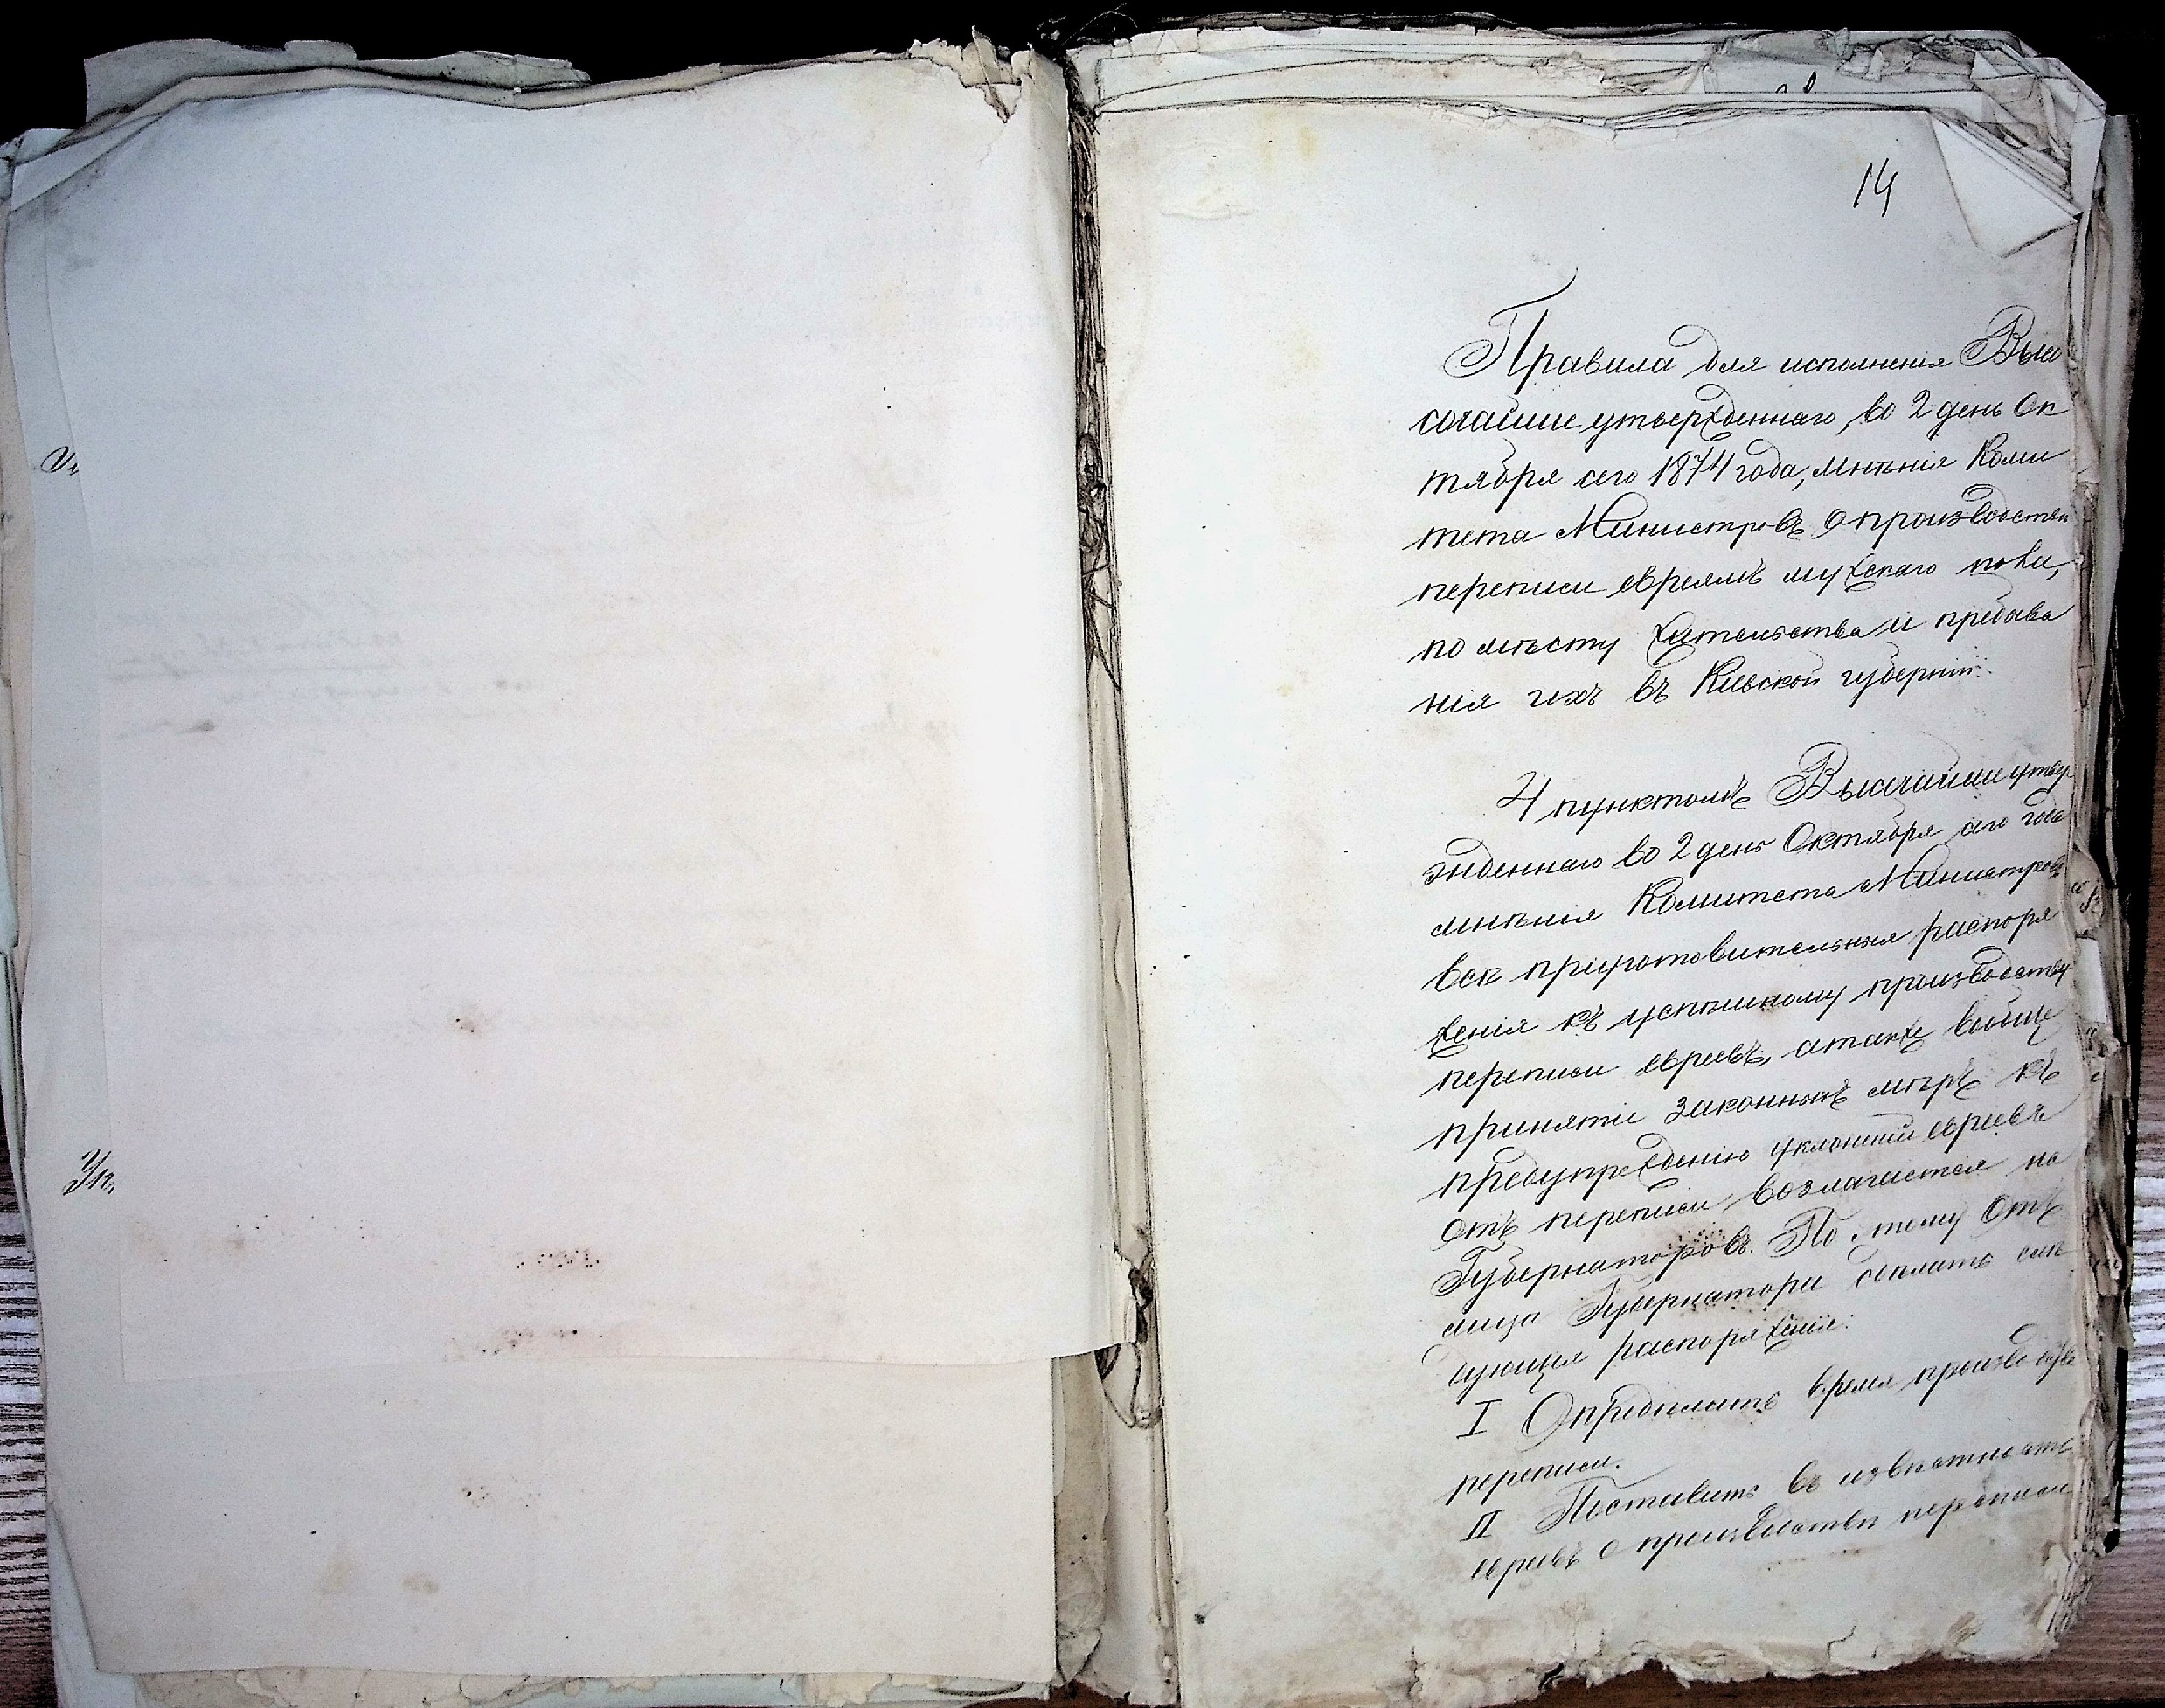 14
Правила для исполненія Выс
сочайше утвержденнаго, во 2 день Ок
тября сего 1874 года, мнѣнія Коми
тета Министровъ о производствѣ
переписи евреямъ мужскаго пола,
по мѣсту жительства и пребыва
нія ихъ въ Кіевской губерніи.
4 пунктомъ Высочайше утвер
жденнаго во 2 день Октября сего года
мнѣнія Комитета Министровъ
всѣ приготовительныя распоря
женія къ успѣшному производству
переписи евреевъ, а также вообще
принятіе законныхъ мѣръ къ
предупрежденію уклоненій евреевъ
отъ переписи возлагается на
Губернаторовъ. По тому отъ
лица Губернатора слѣдующія
дующія распоряженія:
I Опредѣлить время производства
переписи.
II Поставить въ извѣстность
евреевъ о производствѣ переписи
Ук
Уп,